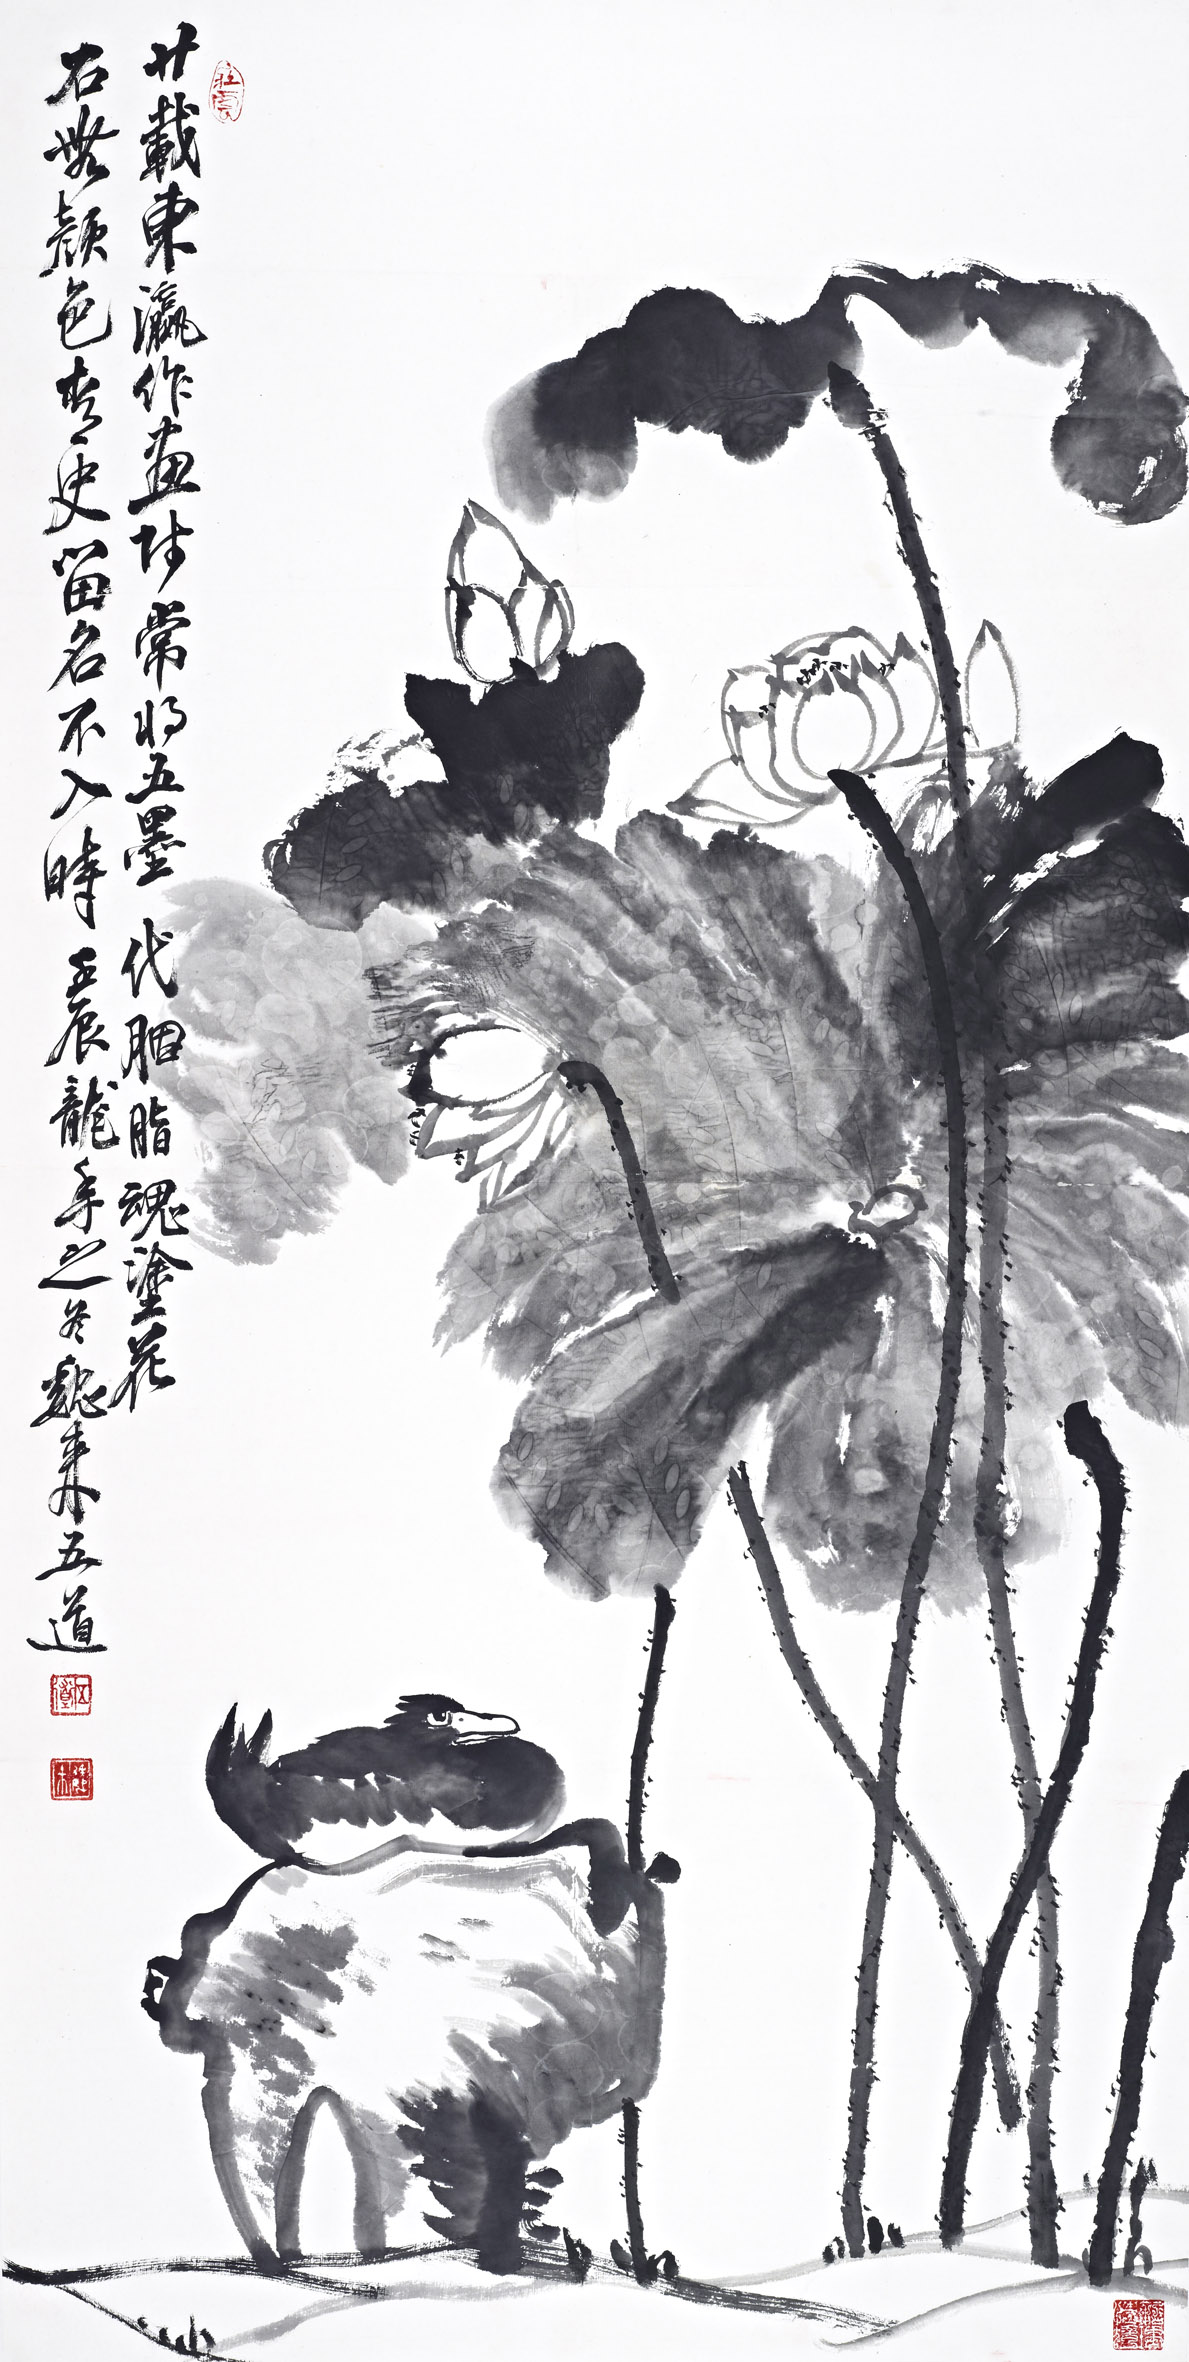 廿載東瀛作畫時常將五墨代胭脂魂塗花
石無顏色青史留名不入時壬辰龍年之冬魏來五道